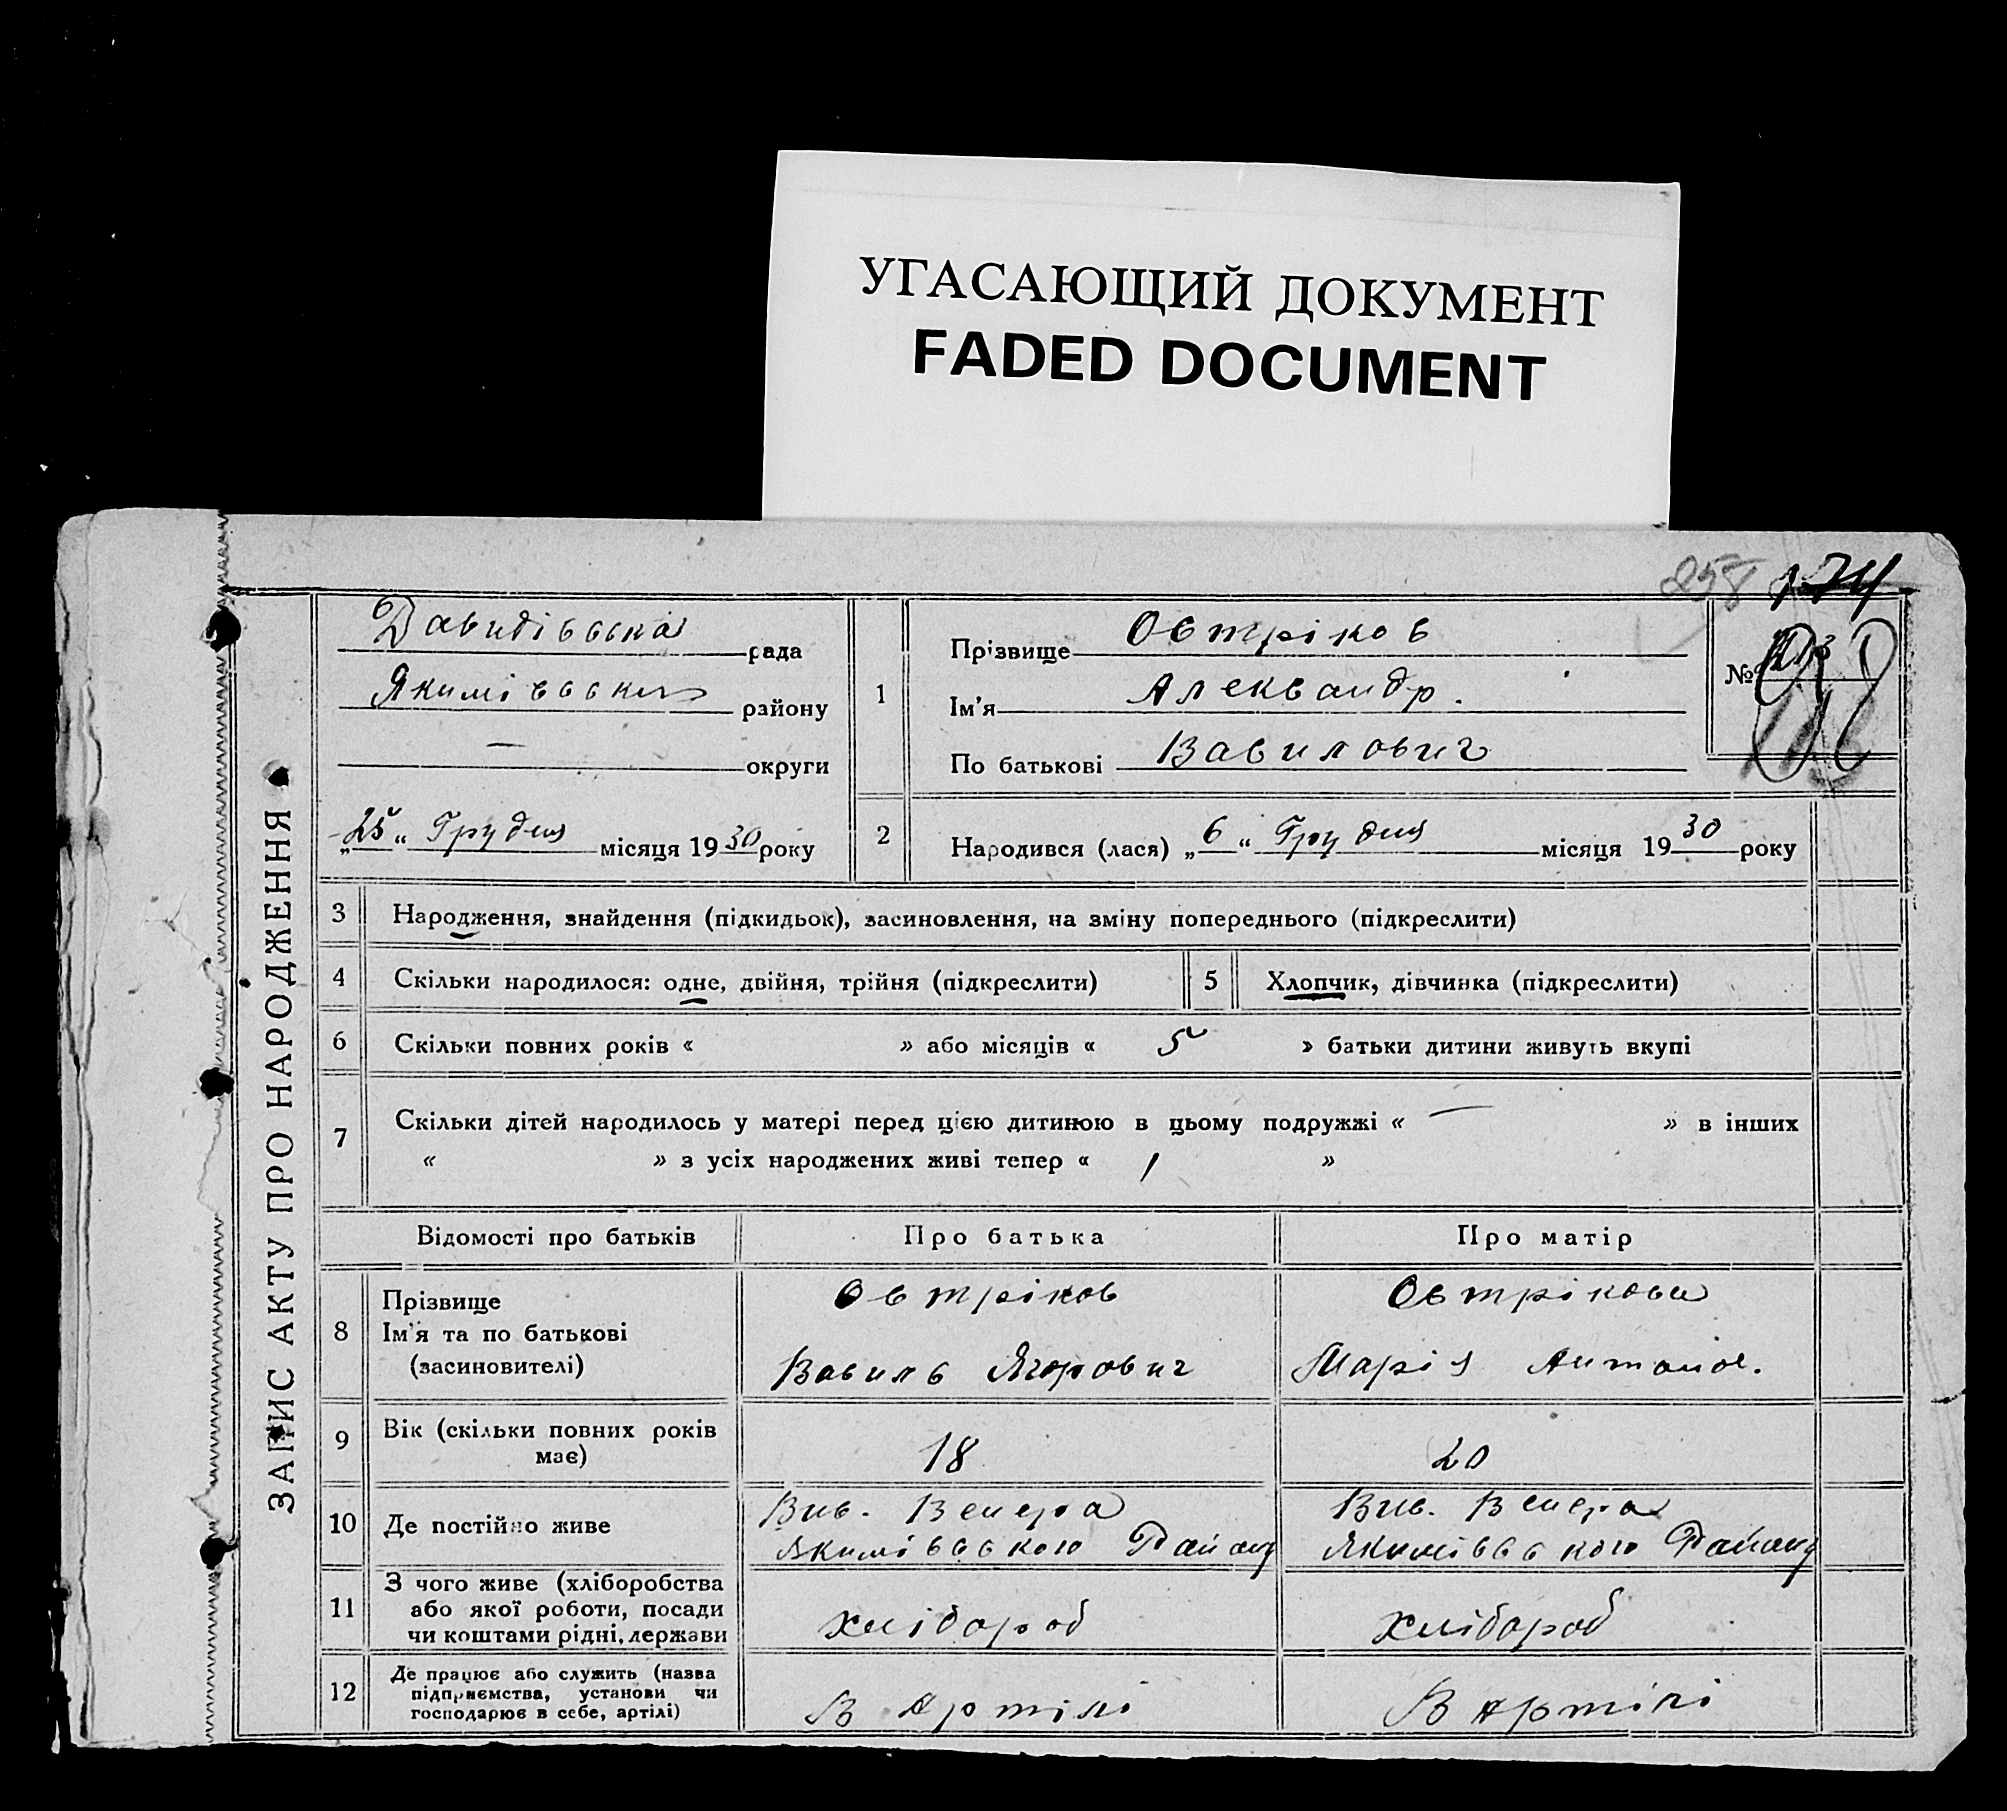 УГАСАЮЩИЙ ДОКУМЕНТ
FADED DOCUMENT
258 174
ЗАПИС АКТУ ПРО НАРОДЖЕННЯ
Давидівська рада
Якимівськ району
— округи
„25“ Грудня місяця 1930 року
1
Прізвище Овтріков
Ім'я Александр.
По батькові Вавилович
№
2
Народився (лася) „6“ Грудня місяця 1930 року
3 Народження, знайдення (підкидьок), засиновлення, на зміну попереднього (підкреслити)
4 Скільки народилося: одне, двійня, трійня (підкреслити) 5 Хлопчик, дівчинка (підкреслити)
6 Скільки повних років « » або місяців « 5 » батьки дитини живуть вкупі
7 Скільки дітей народилось у матері перед цією дитиною в цьому подружжі « — » в інших
« » з усіх народжених живі тепер « 1 »
Відомості про батьків Про батька Про матір
8 Прізвище Овтріков Овтрікова
Ім'я та по батькові
(засиновителі) Вавиль Ягорович Марія Антонов.
9 Вік (скільки повних років
має) 18 20
10 Де постійно живе Вис. Венера Вис. Венера
Якимівського Району Якимівського Району
11 З чого живе (хліборобства
або якої роботи, посади
чи коштами рідні, держави хлібороб хлібороб
12 Де працює або служить (назва
підприємства, установи чи
господарює в себе, артілі) В Артілі В Артілі